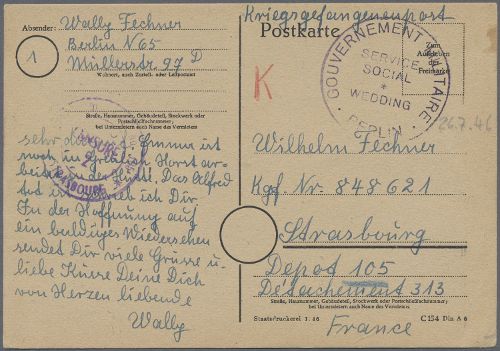 Kriegsgefangenenpost
Absender: Wally Fechner
Berlin N 65
1 Müllerstr. 97 D
Wohnort, auch Zustell- oder Leitpostamt
Straße, Hausnummer, Gebäudeteil, Stockwerk oder
Postschließfachnummer;
bei Untermietern auch Name des Vermieters
sehr Emma ist
noch in Horst ar-
beitet in der Das Alfred
tot ich Dir
In der Hoffnung auf
ein baldiges Wiedersehen
sendet Dir viele Grüsse u.
liebe Küsse Deine Dich
von Herzen liebende
Wally
STRASBOURG
Postkarte
Zum
Aufkleben
der
Freimarke
K
GOUVERNEMENT MILITAIRE
SERVICE
SOCIAL
*
WEDDING
BERLIN
26.7.46
Wilhelm Fechner
Kgf. Nr. 848621
Strasbourg
Depot 105
Détachement 313
Straße, Hausnummer, Gebäudeteil, Stockwerk oder Postschließfachnummer;
bei Untermietern auch Name des Vermieters
France
Staatsdruckerei 1. 46. C 154 Din A 6